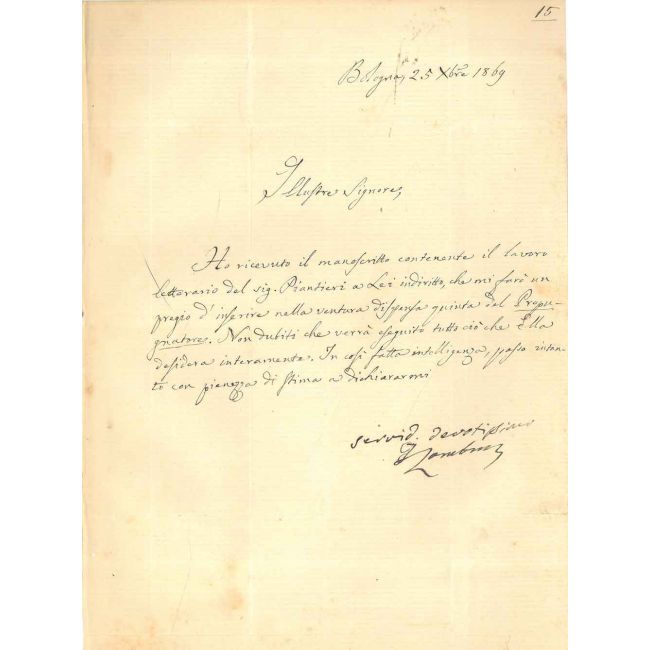 15
Bologna, 25 Xbre 1869
Illustre Signore,
Ho ricevuto il manoscritto contenente il lavoro
letterario del sig. Piantieri a Lei indiritto, che mi farò un
pregio d'inserire nella ventura dispensa quinta del Propu-
gnatore. Non dubiti che verrà eseguito tutto ciò che Ella
desidera interamente. In così fatta intelligenza, passo intan-
to con pienezza di stima a dichiararmi
servid. devotissimo
F Zambrini